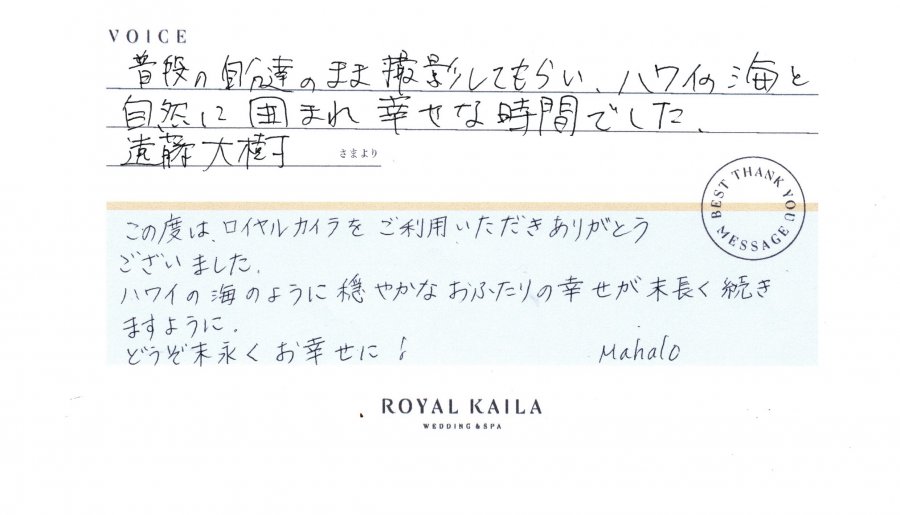 VOICE
普段の自分達のまま撮影してもらい、ハワイの海と
自然に囲まれ幸せな時間でした。
遠藤大樹 さまより
BEST THANK YOU MESSAGE
この度は、ロイヤルカイラをご利用いただきありがとう
ございました。
ハワイの海のように穏やかなおふたりの幸せが末長く続き
ますように。
どうぞ末永くお幸せに!
Mahalo
ROYAL KAILA
WEDDING & SPA